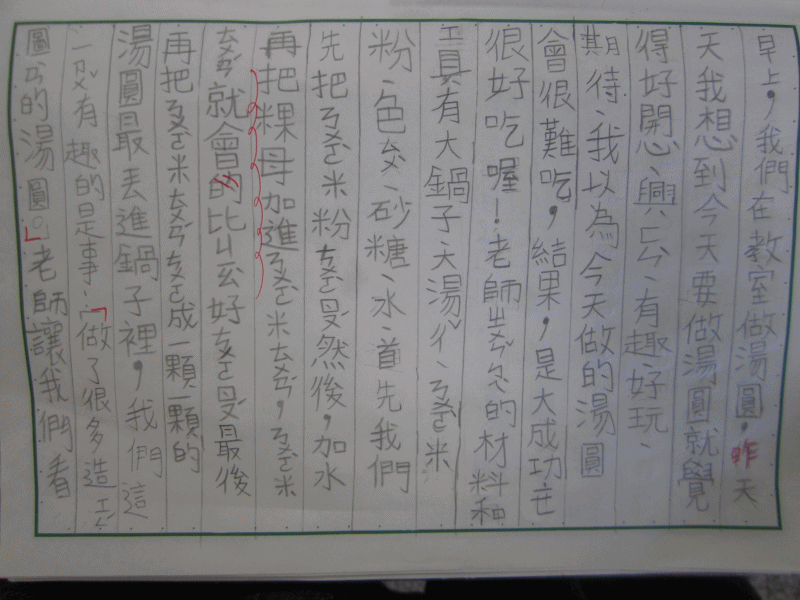 早上，我們在教室做湯圓，昨天
天我想到今天要做湯圓就覺
得好開心、興ㄈㄣˋ、有趣、好玩、
期待、我以為今天做的湯圓
會很難吃，結果，是大成功ㄝ
很好吃喔！老師ㄓㄨㄣˇㄅㄟˋ的材料和
工具有大鍋子、大湯ㄔˊ、ㄋㄨㄛˋ米
粉、色ㄈㄣˇ、砂糖、水、首先我們
先把ㄋㄨㄛˋ米粉
然後，加水
再把粿母加進ㄋㄨㄛˋ米ㄊㄨㄢˊ，ㄋㄨㄛˋ米
ㄊㄨㄢˊ就會的比ㄐㄠˋ好
最後
再把ㄋㄨㄛˋ米ㄊㄨㄢˊ
成一顆一顆的
湯圓最丟進鍋子裡，我們這
有趣的是事：「做了很多造ㄒㄧㄥˊ
的湯圓。」老師讓我們看